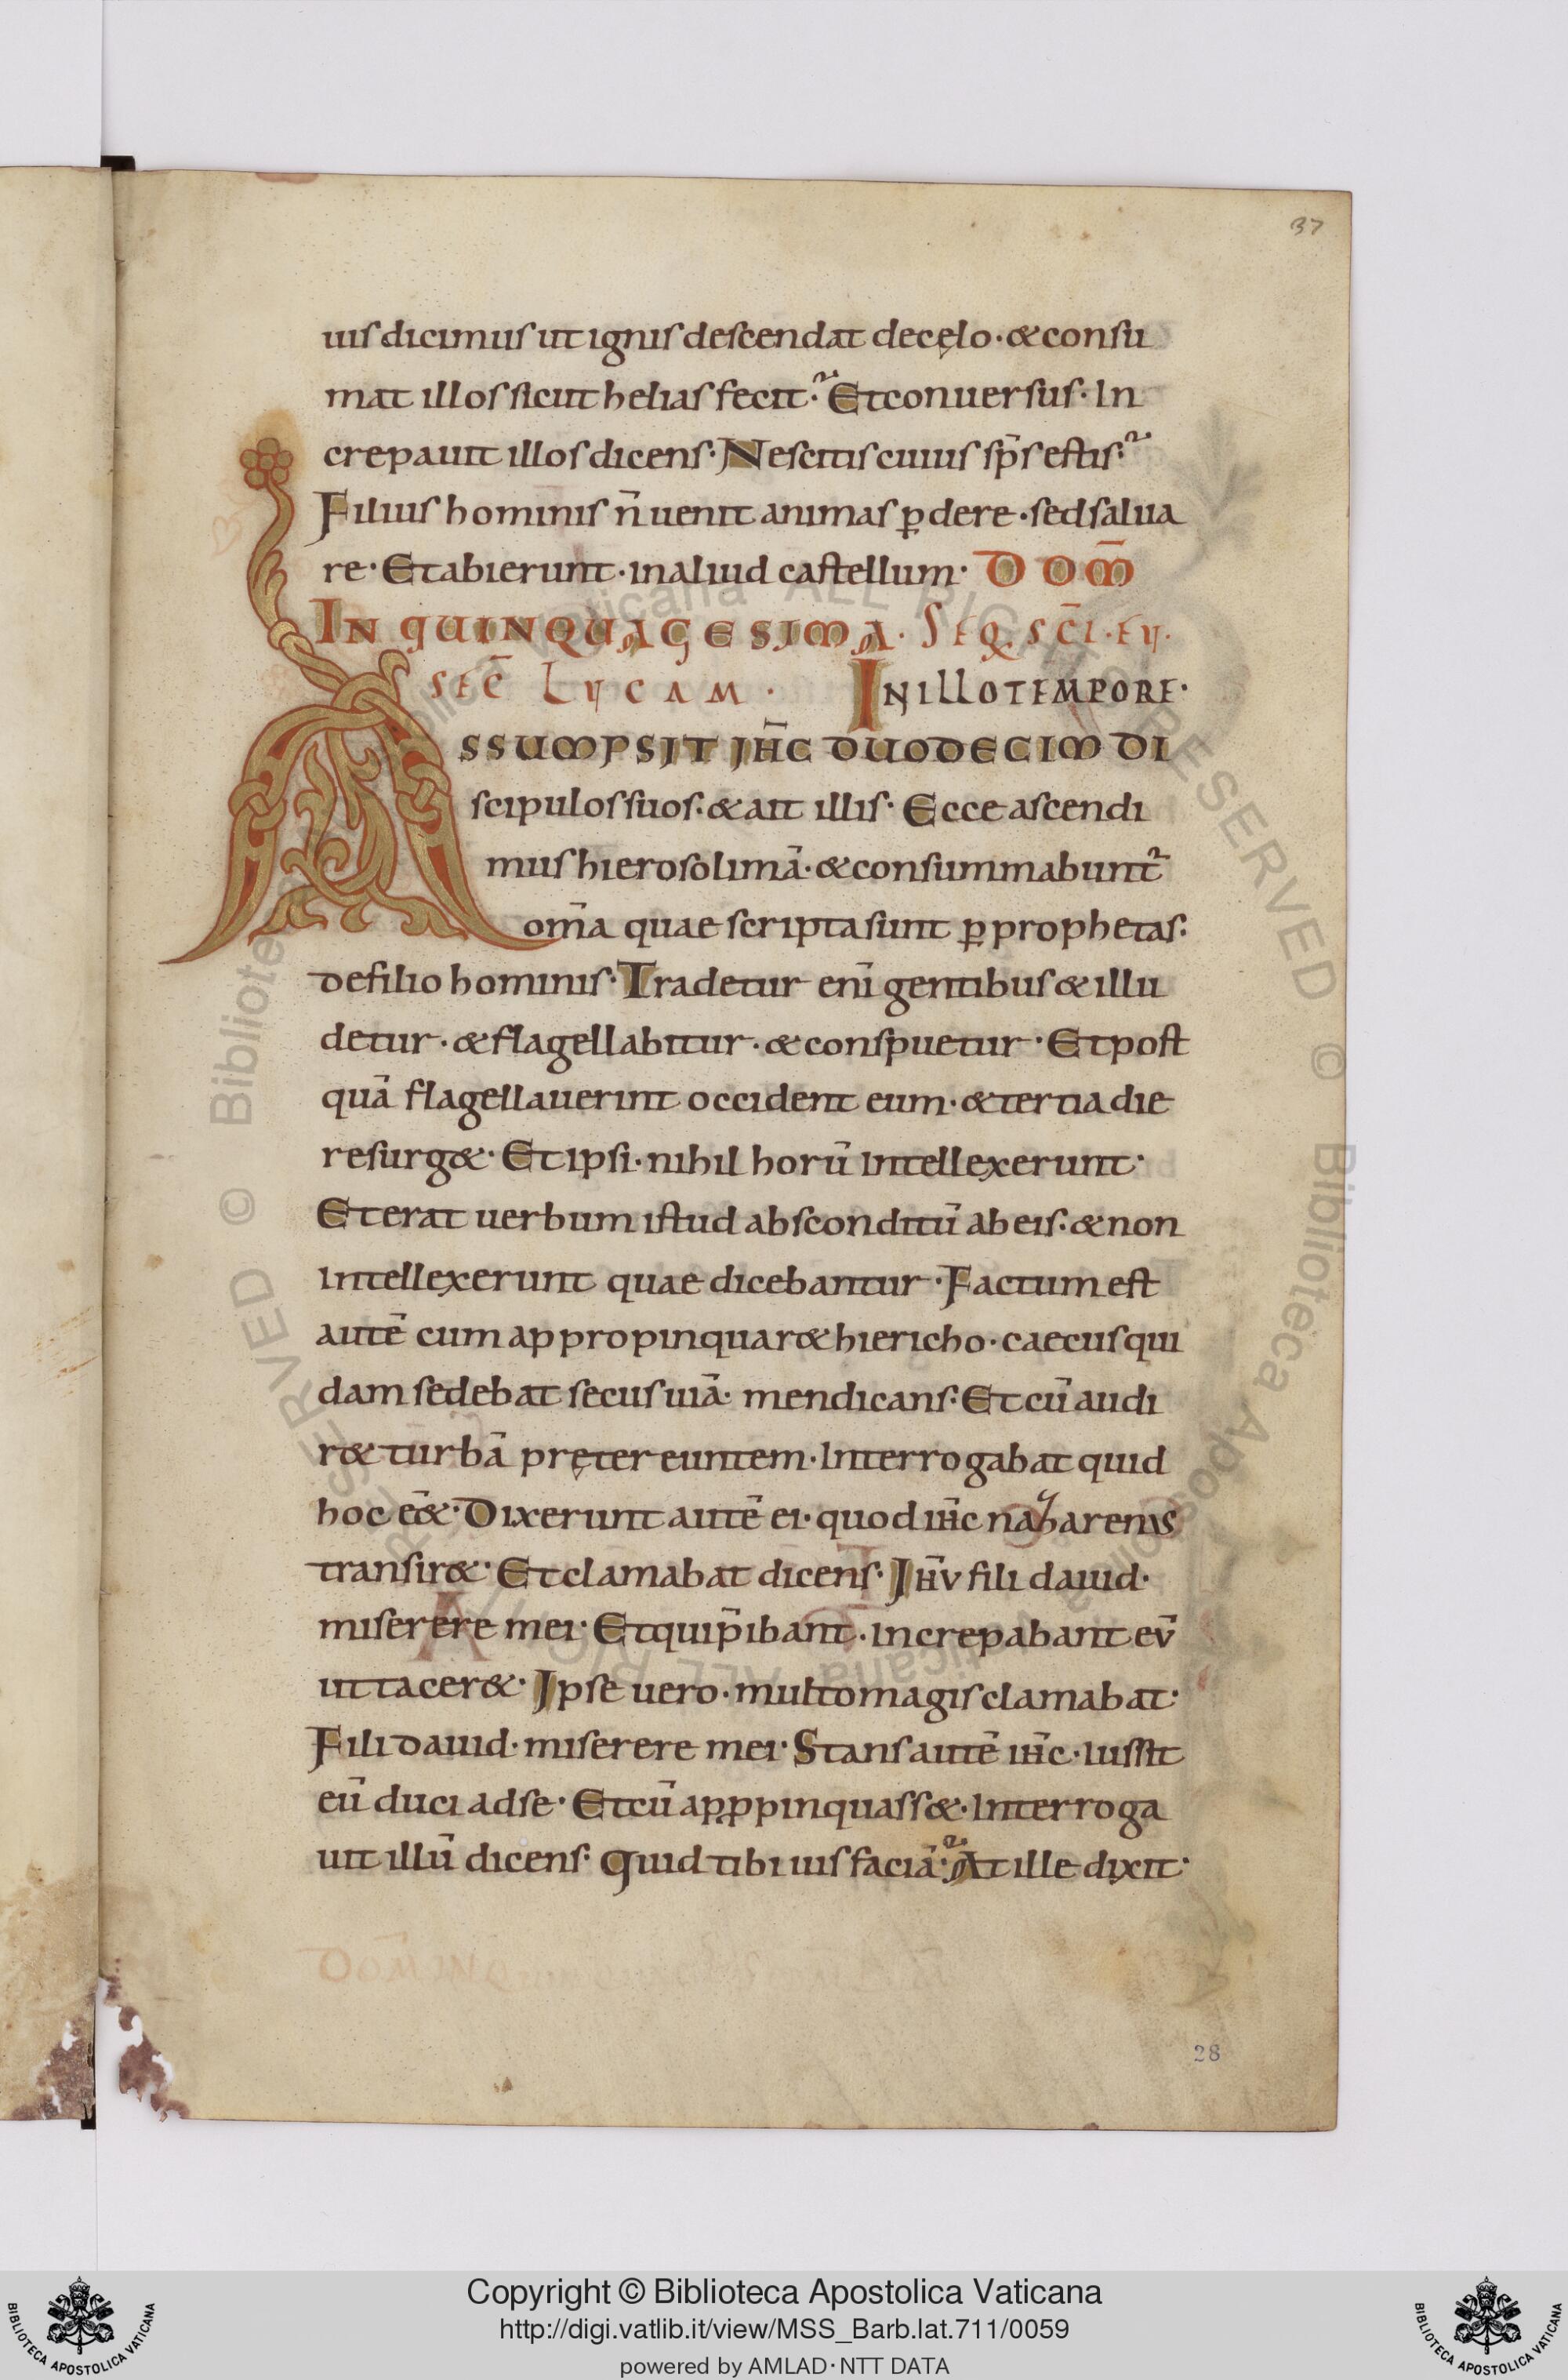 37
uis dicimus ut ignis descendat de cęlo · & consu
mat illos sicut helias fecit · Et conuersus · In
crepauit illos dicens · Nescitis cuius sp̄s estis ·
Filius hominis n̄ uenit animas ꝑdere · sed salua
re · Et abierunt · in aliud castellum · D DOM̄
IN QUINQUAGESIMA · SEQ SC̄I · EU ·
SEC̄ LUCAM · IN ILLO TEMPORE ·
ASSUMPSIT IH̄C DUODECIM DI
scipulos suos · & ait illis · Ecce ascendi
mus hierosolimā · & consummabunt᷑
om̄a quae scripta sunt ꝑ prophetas :
de filio hominis · Tradetur enī gentibus & illu
detur · & flagellabitur · & conspuetur · Et post
quā flagellauerint occident eum · & tertia die
resurg& · Et ipsi · nihil horū intellexerunt ·
Et erat uerbum istud absconditū ab eis · & non
intellexerunt quae dicebantur · Factum est
autē cum appropinquar& hiericho · caecus qui
dam sedebat secus uiā · mendicans · Et cū audi
r& turbā pręter euntem · Interrogabat quid
hoc eē& · Dixerunt autē ei · quod ih̄c nazarenus
transir& · Et clamabat dicens · Jh̄v fili dauid ·
miserere mei · Et qui p̄ibant · increpabant ev̄
ut tacer& · Jpse uero · multo magis clamabat ·
Fili dauid · miserere mei · Stans autē ih̄c · iussit
eū duci ad se · Et cū apꝓpinquass& · Interroga
uit illū dicens · Quid tibi uis faciā · At ille dixit ·
28
Copyright © Biblioteca Apostolica Vaticana
http://digi.vatlib.it/view/MSS_Barb.lat.711/0059
powered by AMLAD·NTT DATA
BIBLIOTECA APOSTOLICA VATICANA
BIBLIOTECA APOSTOLICA VATICANA